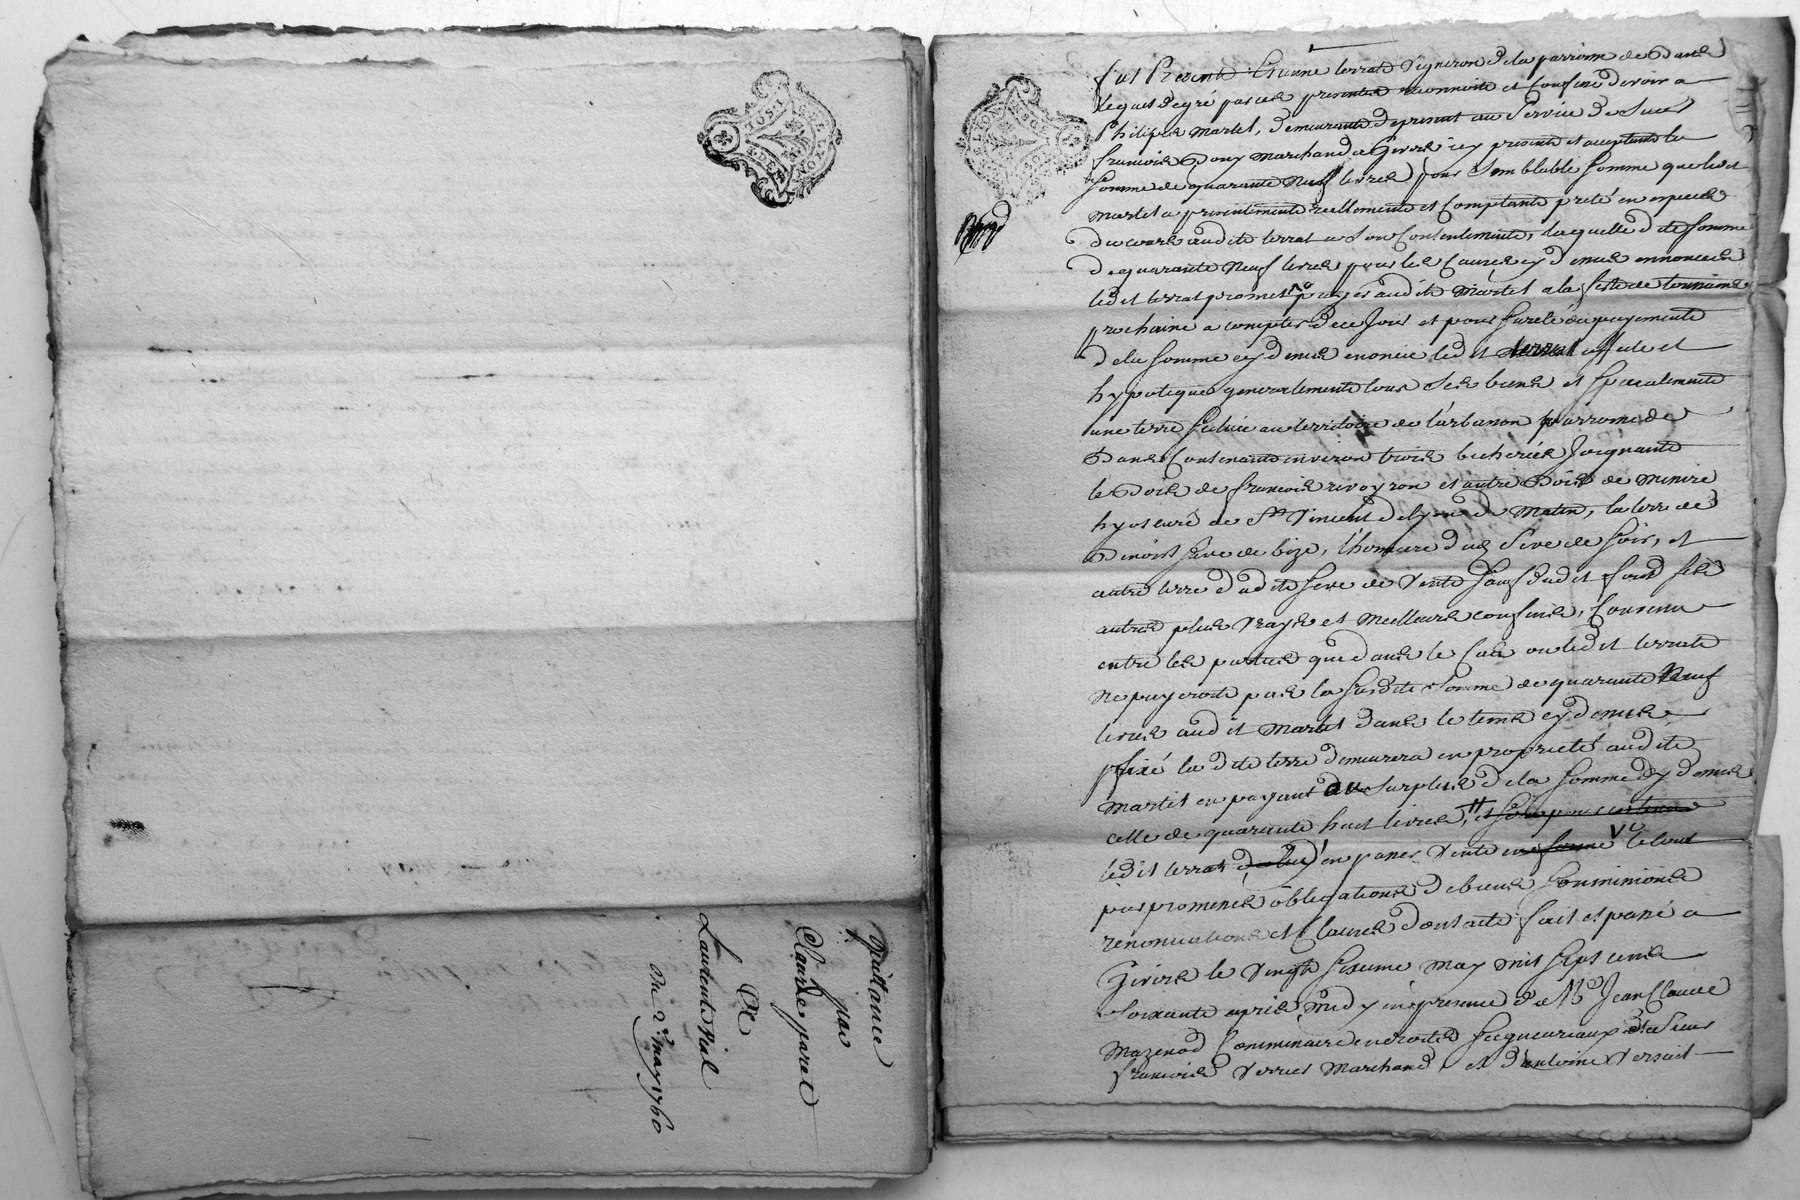 Quittance
par
Claude paret
a
Laurent Pial
Du 2e. may 1760
fut Present Etienne terrat Vigneron de la parroisse de Dane
lequel de gré par ces presentes reconnoit et Confesse devoir a
Philipe Martel, demeurant de present au Service de Sieur
francois Bony Marchand a Givors icy present et acceptant la
Somme de quarante Neuf livres pour Semblable Somme que ledit
Martel a presentement reellement et Comptant preté en especes
du cours audit terrat a Son Contentement, laquelle dite Somme
de quarante Neuf livres pour les Causes cy dessus ennoncées
ledit terrat promet payer audit Martel a la feste de toussaint
prochaine a compter de ce Jour et pour Sureté du payement
de la Somme cy dessus enoncée ledit terrat affecte et
hypoteque generalement tous Ses biens et Specialement
une terre Scituée au territoire de parroisse de
Dane Contenant environ trois bicherées Joignant
le Bois de francois rivoyron et autre Bois de
de St. Vincent de Lyon de Matin, la terre de
Benoist Seve de bize, dud. Seve de Soir, et
autre terre dudit Seve de Vent Sauf dudit fond Ses
autres plus Vrays et Meilleurs confins, Convenu
entre les parties que dans le Cas ou ledit terrat
Ne payeroit pas la Susdite Somme de quarante Neuf
livres audit Martel dans le temps cy dessus
fixé la dite terre demeurera en propriété audit
Martel en payant au Surplus de la Somme cy dessus
celle de quarante huit livres, et
ledit terrat d'en passer Vente le tout
par promesses obligations de biens Soumissions
renonciations et Clauses dont acte fait et passé a
Givors le Vingt Sixieme May mil Sept cens
Soixante après Midy en presence de Me. Jean Claude
Mazenod Commissaire en droits Seigneuriaux de Sieur
francois Verrier Marchand et d'antoine Versait